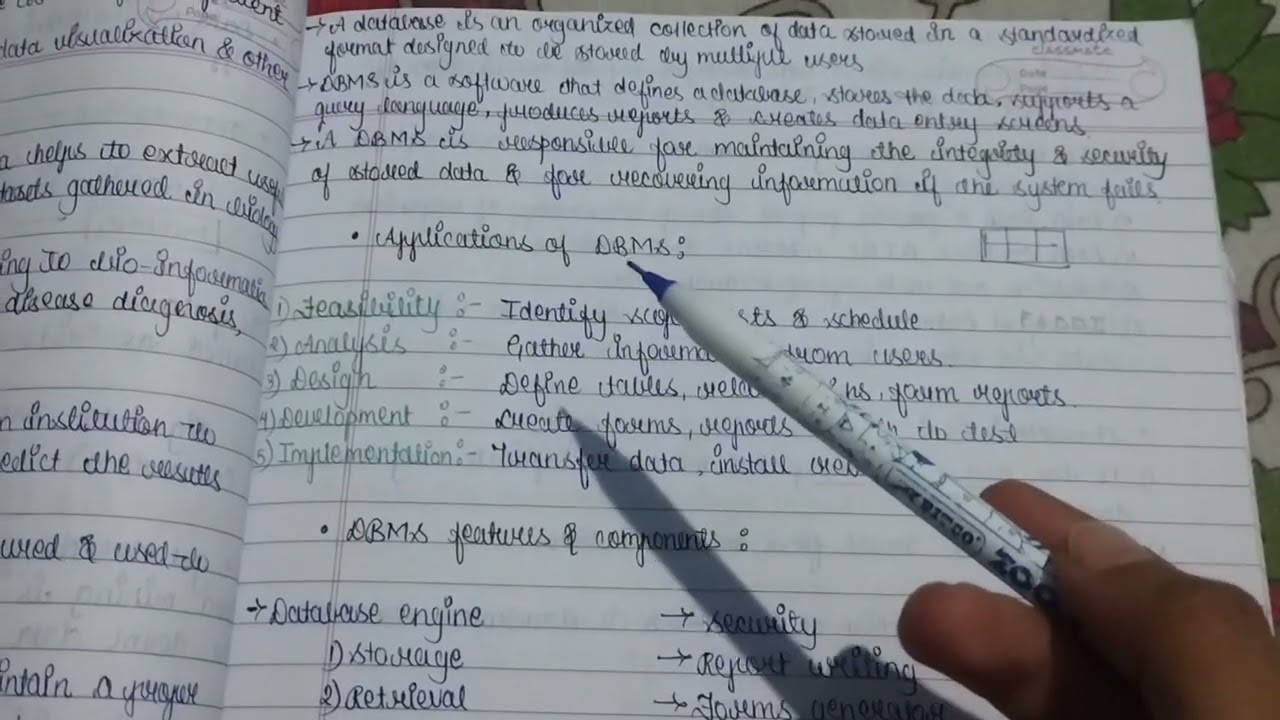 data visualization & other
a helps to extract
gathered in
ing to bio-informatic
disease diagnosis,
n institution to
edict the results
ured & used to
intain a proper
→ A database is an organized collection of data stored in a standardized
format designed to be stored by multiple users
classmate
Date
Page
→ DBMS is a software that defines a database, stores the data, supports a
query language, produces reports & creates data entry screens.
→ A DBMS is responsible for maintaining the integrity & security
of stored data & for recovering information if the system fails
• Applications of DBMS:
1) Feasibility :- Identify & schedule.
2) Analysis :- Gather from users.
3) Design :- Define tables, form reports.
4) Development :- Create forms, reports to test
5) Implementation :- Transfer data, install
• DBMS features & components :
→ Database engine → security
1) storage → Report writing
2) Retrieval → Forms generator